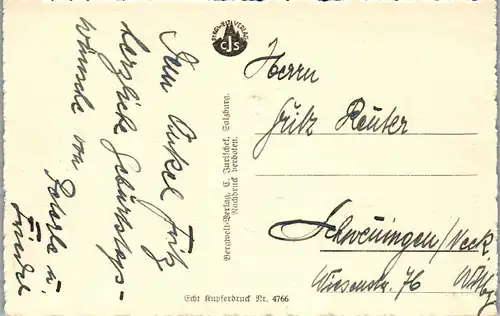 Dem Onkel Fritz
herzliche Geburtstags-
wünsche von
u.
BERGWELT-VERLAG
cjs
Bergwelt-Verlag, C. Jurischek, Salzburg.
Nachdruck verboten.
Herrn
Fritz Reuter
Schwenningen/Neck.
76 Wttbg
Echt Kupferdruck Nr. 4766